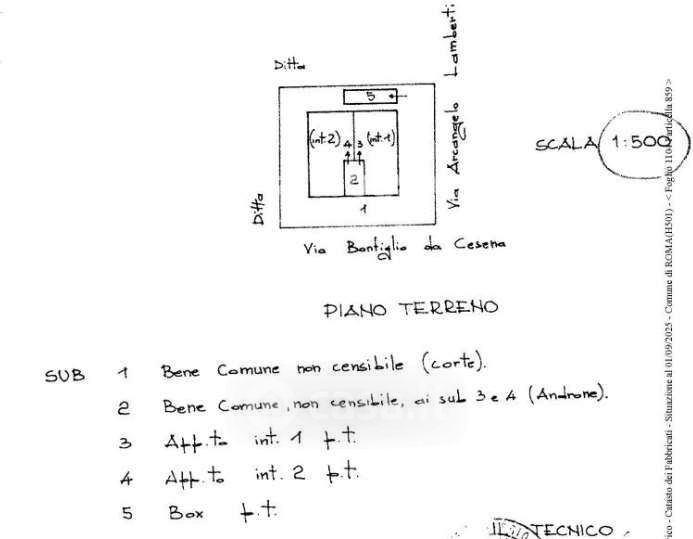 Ditta
Via Arcangelo Lamberti
5
(int.2) 4 3 (int.1)
2
1
Ditta
Via Bontiglio da Cesena
SCALA 1:500
PIANO TERRENO
SUB 1 Bene Comune non censibile (corte).
2 Bene Comune, non censibile, ai sub 3 e 4 (Androne).
3 App.to int. 1 p.t.
4 App.to int. 2 p.t.
5 Box p.t.
IL TECNICO
Catasto dei Fabbricati - Situazione al 01/09/2025 - Comune di ROMA(H501) - < Foglio 1104 Particella 859 >